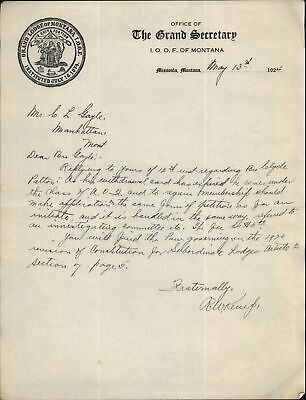 GRAND LODGE OF MONTANA, I.O.O.F.
INSTITUTED JULY 16, 1874.
OFFICE OF
The Grand Secretary
I. O. O. F. OF MONTANA
Missoula, Montana, May 13th 1924
Mr. C L Gayle,
Manhattan,
Mont
Dear Bro Gayle:
Replying to yours of 12th inst regarding Bro Clyde
Patton: As his withdrawal card has expired he comes under
the class of A.O.F. and to regain membership should
make application the same form of petition as for an
initiate and it is handled in the same way, referred to
an investigating committee etc. The fee
You will find the law governing in the 1920
revision of Constitution for Subordinate Lodges
section of page
Fraternally,